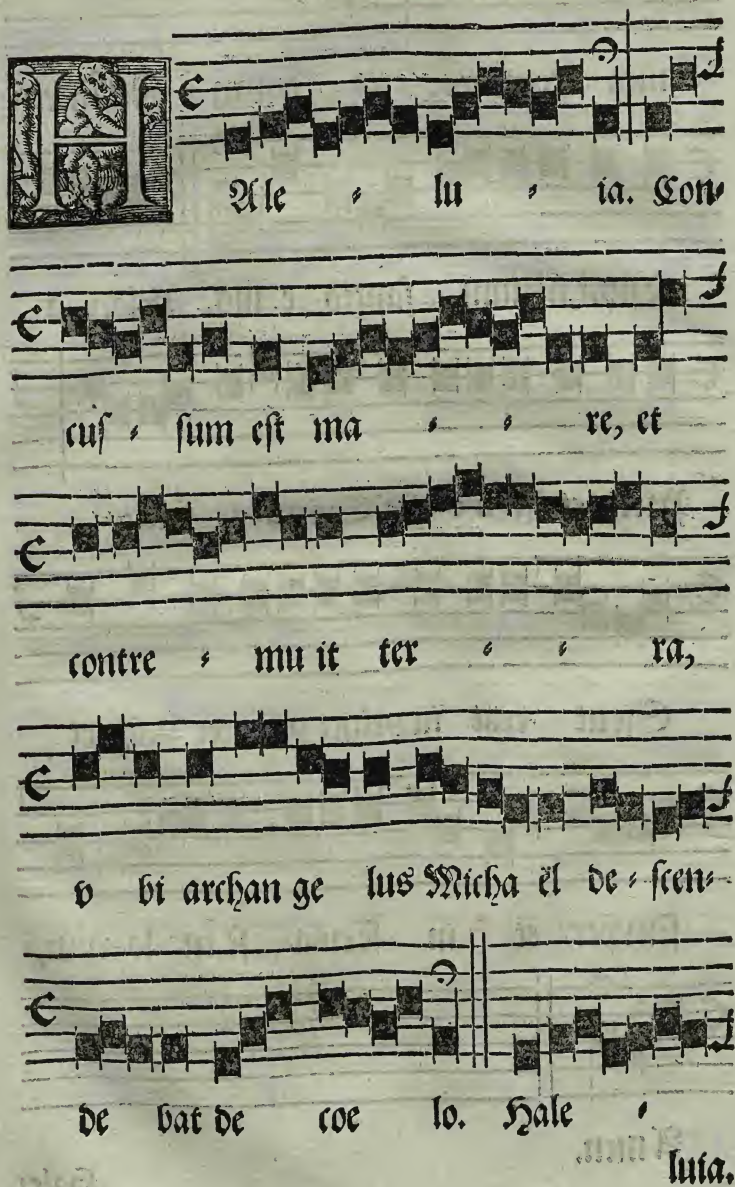 HAle - lu - ia. Con-
cus - sum est ma - - re, et
contre - mu it ter - - ra,
v bi archan ge lus Micha ël de - scen-
de bat de coe lo. Hale -
luia.